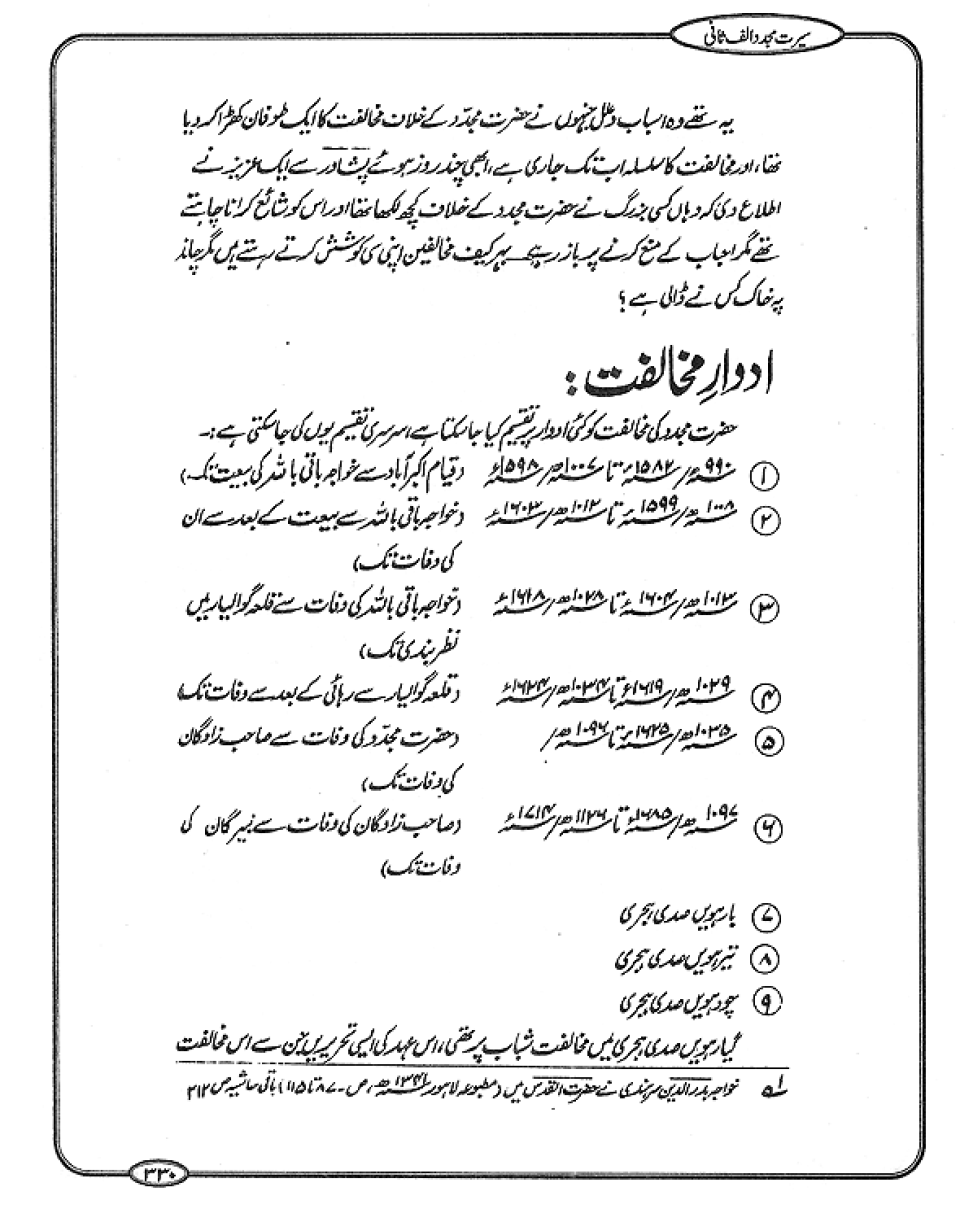 سیرت مجدد الف ثانی
یہ تھے وہ اسباب و علل جنہوں نے حضرت مجدّد کے خلاف مخالفت کا ایک طوفان کھڑا کر دیا
تھا، اور مخالفت کا سلسلہ اب تک جاری ہے، ابھی چند روز ہوئے پشاور سے ایک عزیز نے
اطلاع دی کہ وہاں کسی بزرگ نے حضرت مجدد کے خلاف کچھ لکھا تھا اور اس کو شائع کرانا چاہتے
تھے مگر احباب کے منع کرنے پر باز رہے۔ بہر کیف مخالفین اپنی سی کوشش کرتے رہتے ہیں مگر چاند
پہ خاک کس نے ڈالی ہے؟
ادوارِ مخالفت:
حضرت مجدد کی مخالفت کو کئی ادوار پر تقسیم کیا جا سکتا ہے، سرسری تقسیم یوں کی جا سکتی ہے:۔
① ۹۹۰ھ/۱۵۸۲ء تا ۱۰۰۷ھ/۱۵۹۸ء (قیام اکبر آباد سے خواجہ باقی باللہ کی بیعت تک)
② ۱۰۰۸ھ/۱۵۹۹ء تا ۱۰۱۲ھ/۱۶۰۳ء (خواجہ باقی باللہ سے بیعت کے بعد سے ان
کی وفات تک)
③ ۱۰۱۳ھ/۱۶۰۴ء تا ۱۰۲۸ھ/۱۶۱۸ء (خواجہ باقی باللہ کی وفات سے قلعہ گوالیار میں
نظر بندی تک)
④ ۱۰۲۹ھ/۱۶۱۹ء تا ۱۰۳۴ھ/۱۶۲۴ء (قلعہ گوالیار سے رہائی کے بعد سے وفات تک)
⑤ ۱۰۳۵ھ/۱۶۲۵ء تا ۱۰۹۶ھ/ (حضرت مجدّد کی وفات سے صاحب زادگان
کی وفات تک)
⑥ ۱۰۹۷ھ/۱۶۸۵ء تا ۱۱۲۶ھ/۱۷۱۴ء (صاحب زادگان کی وفات سے نبیرگان کی
وفات تک)
⑦ بارہویں صدی ہجری
⑧ تیرہویں صدی ہجری
⑨ چودہویں صدی ہجری
گیارہویں صدی ہجری میں مخالفت شباب پر تھی، اس عہد کی ایسی تحریریں جن سے اس مخالفت
لہ خواجہ بدر الدین سرہندی نے حضرت القدس میں (مطبوعہ لاہور ۱۳۴۱ھ، ص۔ ۸۷ تا ۱۱۵) باقی حاشیہ ص ۲۱۲
۳۳۰